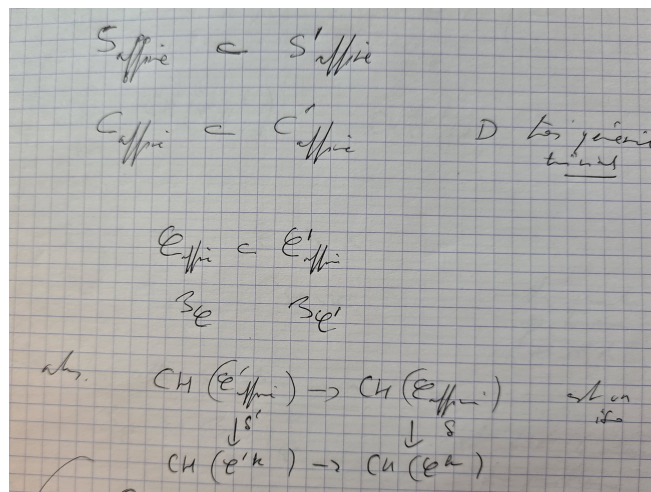 S_affine ⊂ S'_affine
C_affine ⊂ C'_affine D très
𝒞_affine ⊂ 𝒞'_affine
3_𝒞 3_𝒞'
alors CH(𝒞'_affine) → CH(𝒞_affine) est un
iso
↓δ' ↓δ
CH(𝒞'^k) → CH(𝒞^k)